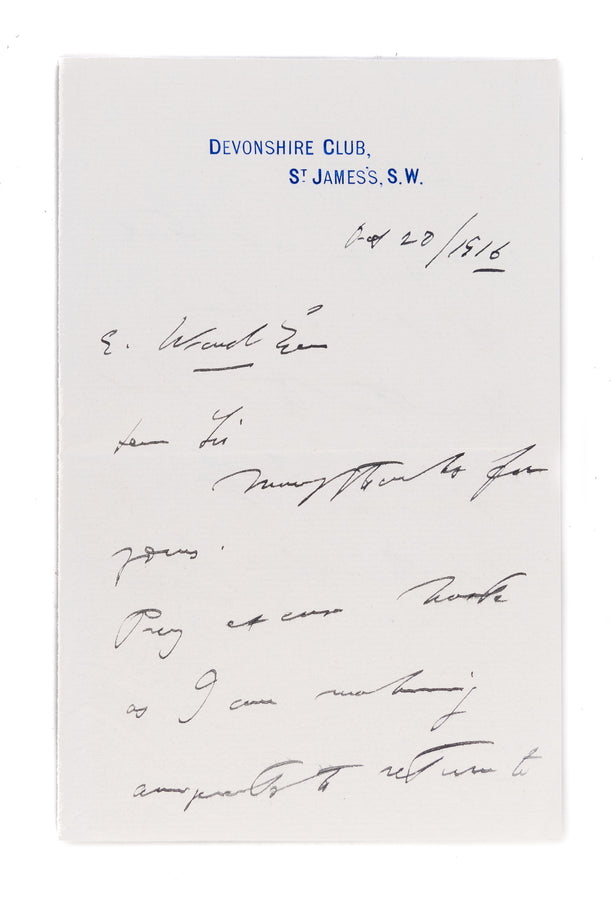 DEVONSHIRE CLUB,
ST JAMES'S, S.W.
Oct 20/1916
E. Ward Esq
Dear Sir
Many thanks for
yours.
Pray excuse haste
as I am making
to return to